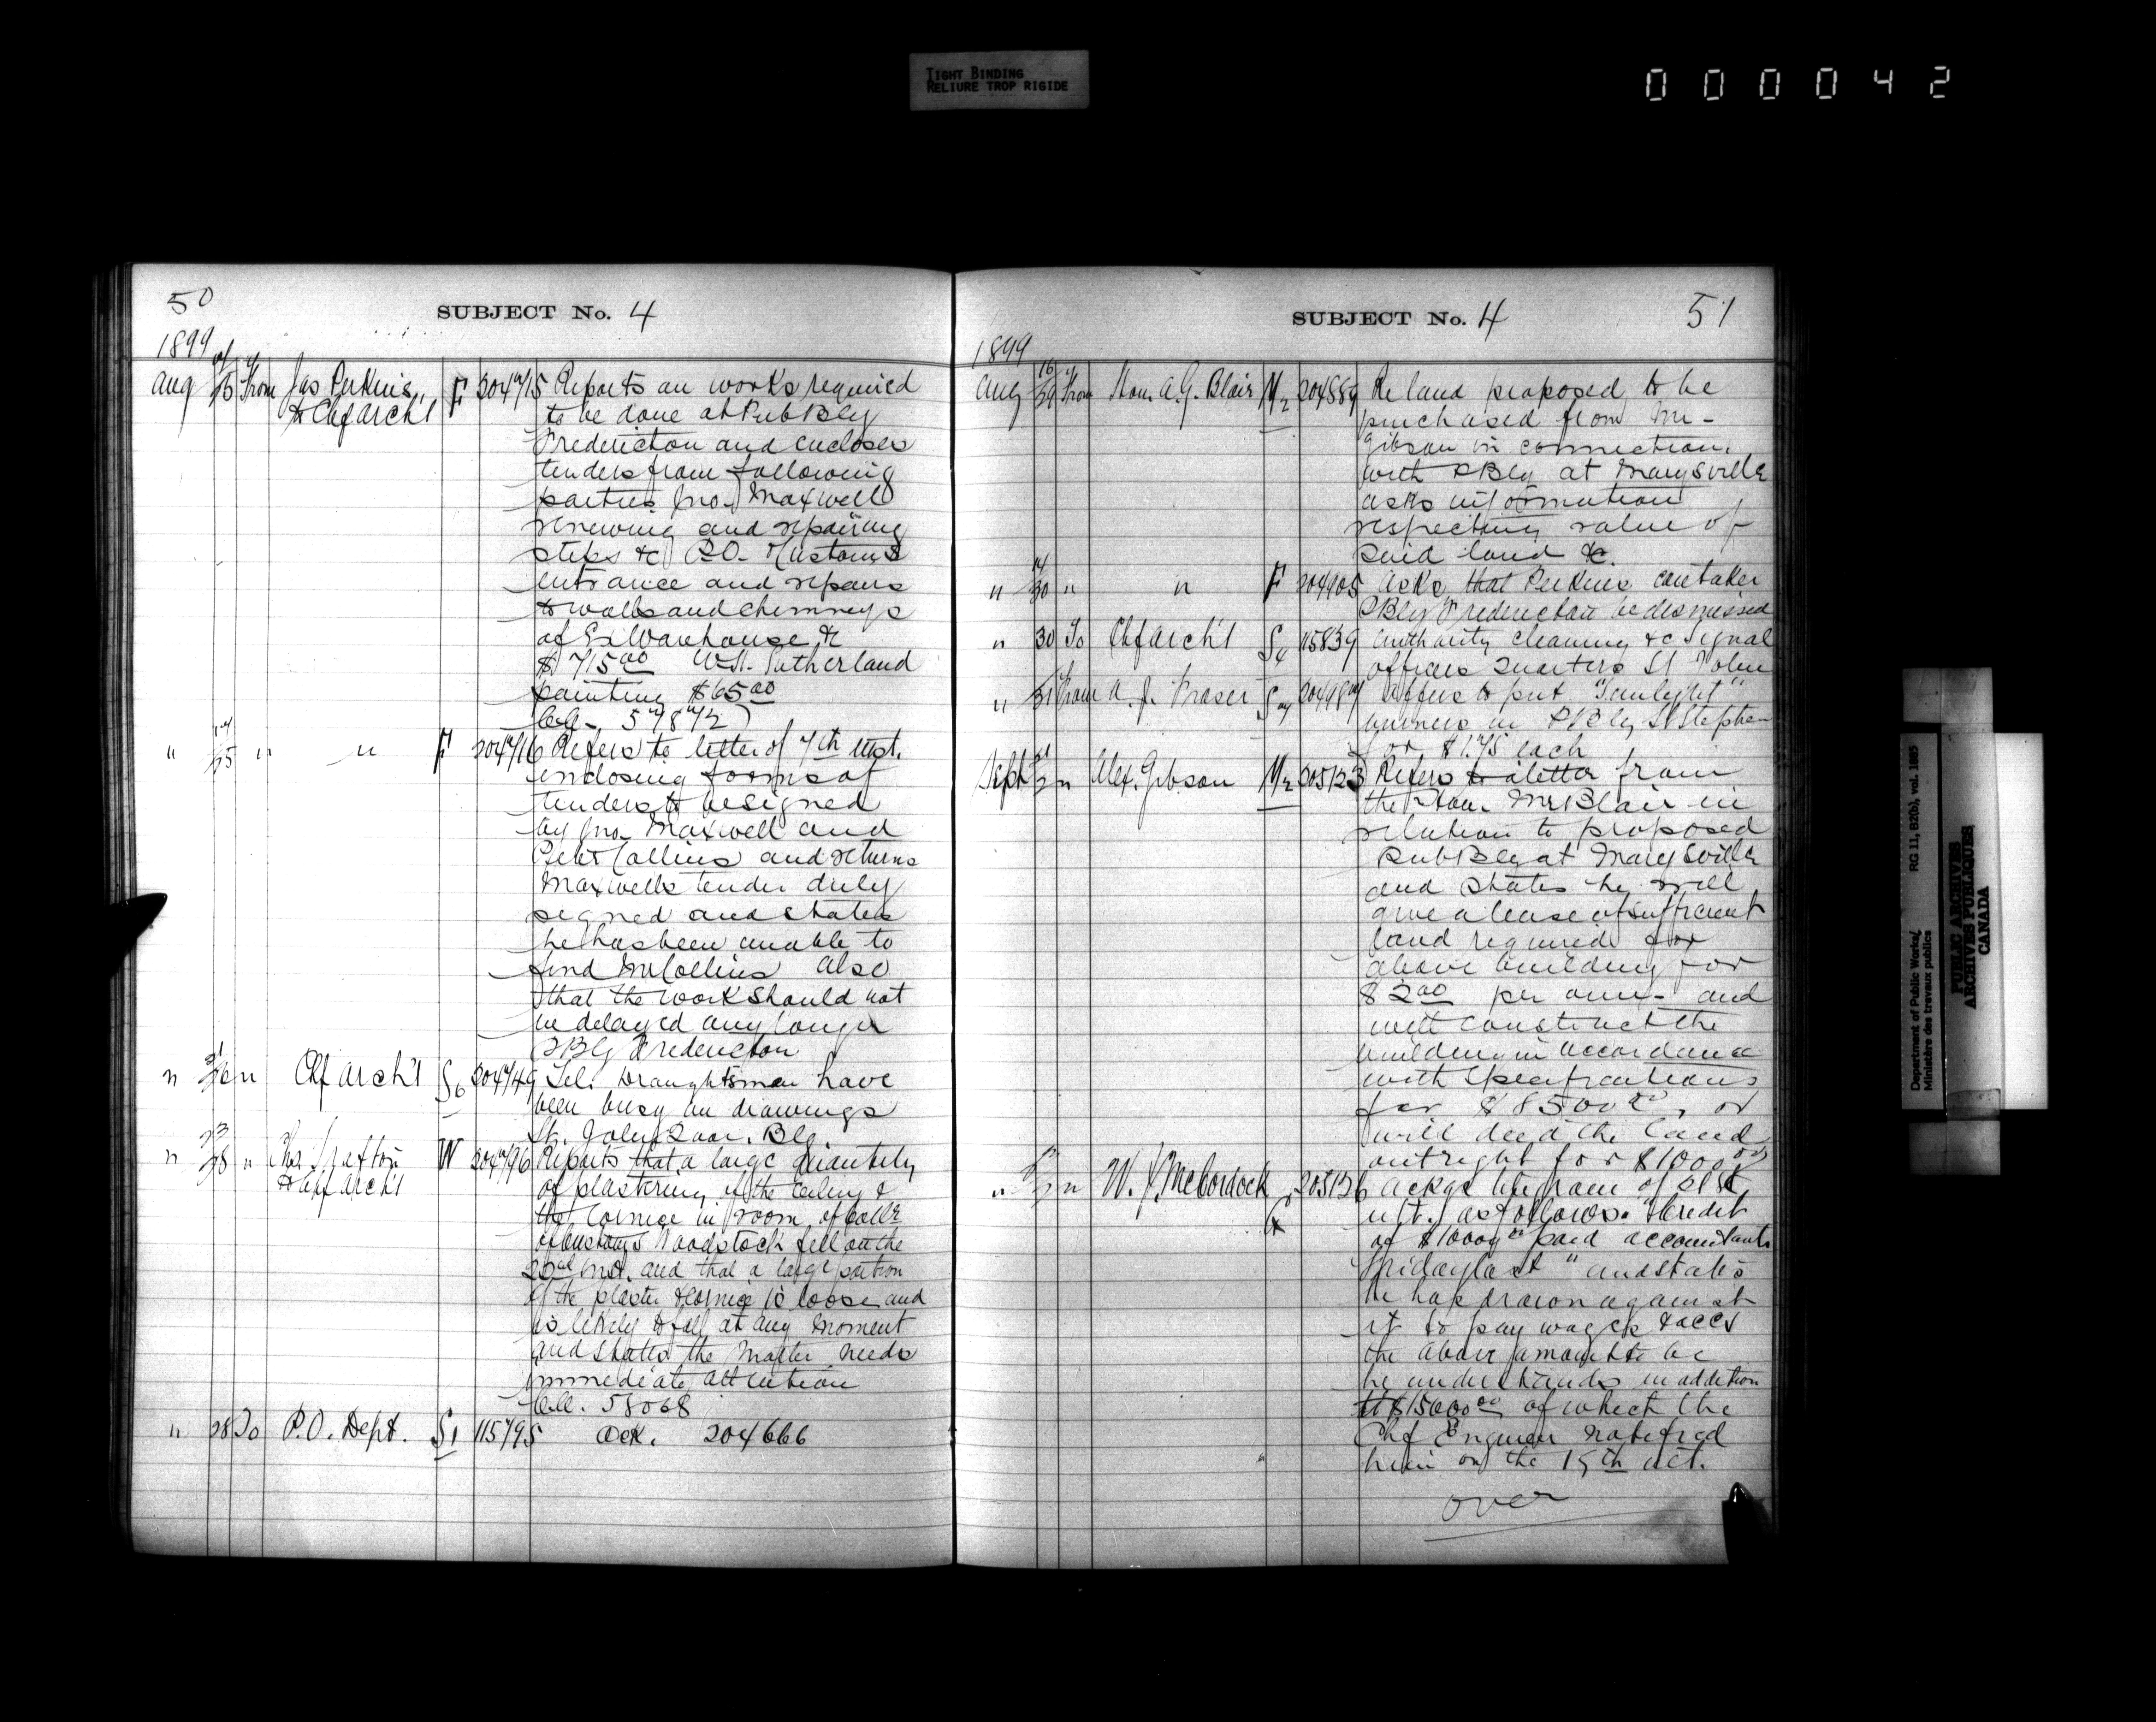 TIGHT BINDING
RELIURE TROP RIGIDE
000042
50
SUBJECT No. 4
1899
Aug 25 From Jas Perkins, F 204715 Reports on works required
to Chf Arch't to be done at Pub Blg
Fredericton and encloses
tenders from following
parties Jno. Maxwell
renewing and repairing
steps &c P.O. & Customs
entrance and repairs
to walls and chimneys
of Ex Warehouse &c
$715.00 W.H. Sutherland
painting $65.00
" 25 " " F 204716 Refers to letter of 7th inst.
enclosing forms of
tenders to be signed
by Jno. Maxwell and
Collins and returns
Maxwells tender duly
signed and states
he has been unable to
find Mr Collins also
that the work should not
be delayed any longer
PBlg Fredericton
" 26 " Chf Arch't S6 204749 Tel. Draughtsmen have
been busy on drawings
St. John Quar. Blg.
" 28 " W 204796 Reports that a large quantity
to Chf Arch't of plastering of the ceiling &
the cornice in room of Collr
of Customs Woodstock fell on the
inst. and that a large portion
of the plaster & cornice is loose and
is likely to fall at any moment
and states the matter needs
immediate attention
58068
" 28 To P.O. Dept. S1 115795 Ack. 204666
SUBJECT No. 4
51
1899
Aug 29 From Hon. A.G. Blair M2 204889 Re land proposed to be
purchased from Mr.
Gibson in connection
with PBlg at Marysville
asks information
respecting value of
said land &c.
" 30 " " F 204905 Asks that Perkins caretaker
PBlg Fredericton be dismissed
" 30 To Chf Arch't S4 115839 Authority cleaning &c Signal
officers quarters St John
" 31 From A. J. Fraser Offers to put "Sunlight"
burners in PBlg St Stephen
for $1.75 each
Sept 2 " Alex. Gibson M2 205123 Refers to a letter from
the Hon. Mr Blair in
relation to proposed
Pub Blg at Marysville
and states he will
give a lease of sufficient
land required for
above building for
$2.00 per ann. and
will construct the
building in accordance
with specifications
for $8500.00, or
will deed the land
outright for $1000.00
" 2 " W. J. McCordock 205136 Ackgs telegram of 21st
ult. as follows. "Credit
of $1000.00 paid accountants
Friday last" and states
he has drawn against
it to pay wages & accs
the above amount to be
he understands in addition
to $15000.00 of which the
Chf Engineer notified
him on the 19th ult.
over
Department of Public Works/
Ministère des travaux publics
RG 11, B20(b), vol. 1885
PUBLIC ARCHIVES
ARCHIVES PUBLIQUES
CANADA